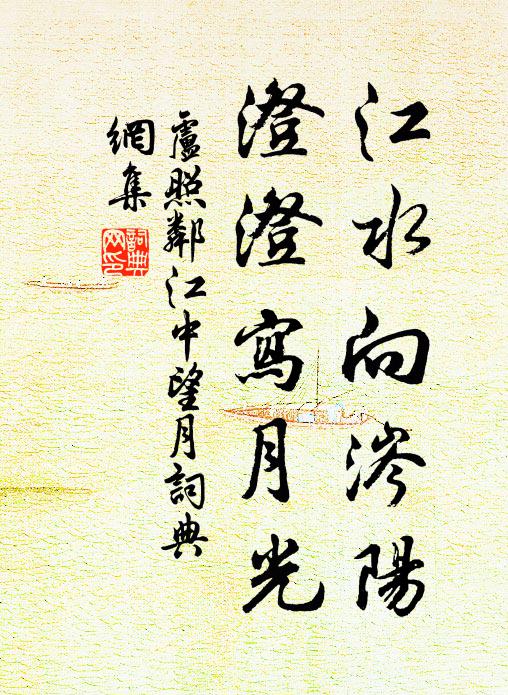 江水向涔陽
澄澄寫月光
盧照鄰江中望月詞典
網集
詞典
网印